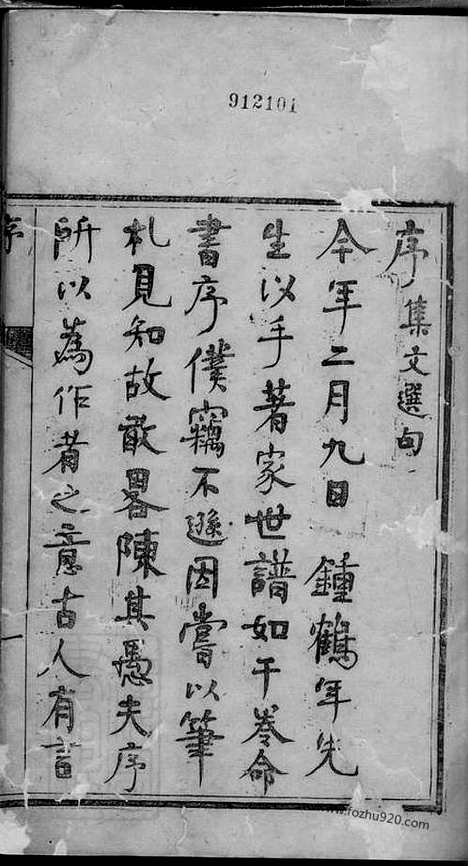 912101
序 集文選句
今年二月九日 鍾鶴年先
生以手著家世譜如干卷命
書序僕竊不遜因嘗以筆
札見知故敢畧陳其愚夫序
所以為作者之意古人有言
序
一
www.fozhu920.com